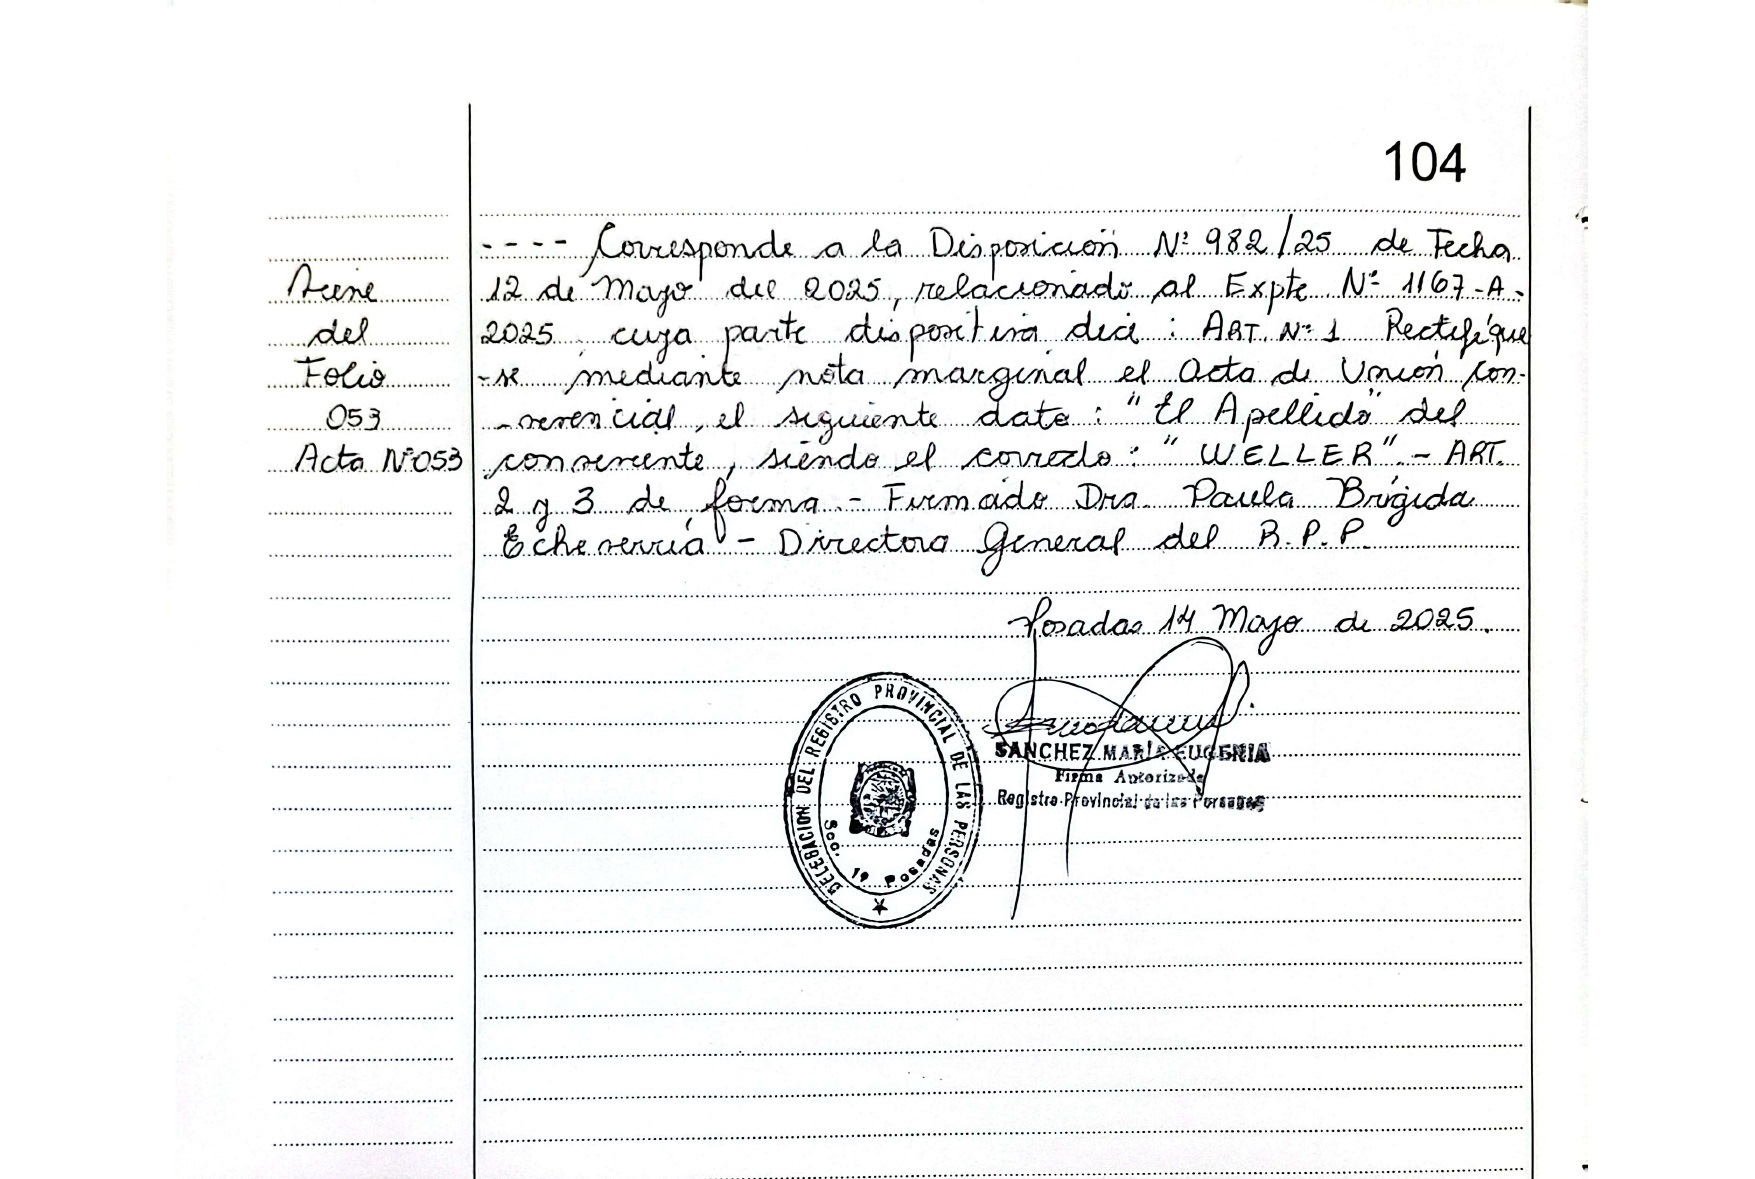 104
---- Corresponde a la Disposición Nº 982/25 de Fecha
12 de Mayo del 2025, relacionado al Expte Nº 1167-A-
2025, cuya parte dispositiva dice: ART. Nº 1 Rectifíque
-se mediante nota marginal el Acta de Unión Con-
-vivencial, el siguiente dato: "El Apellido" del
conviviente, siendo el correcto: "WELLER".- ART.
2 y 3 de forma.- Firmado Dra. Paula Brígida
Echeverría - Directora General del R.P.P.
Posadas 14 Mayo de 2025.
Viene
del
Folio
053
Acta Nº 053
DELEGACION DEL REGISTRO PROVINCIAL DE LAS PERSONAS
Scc. 1ª Posadas
SANCHEZ MARÍA EUGENIA
Firma Autorizada
Registro Provincial de las Personas